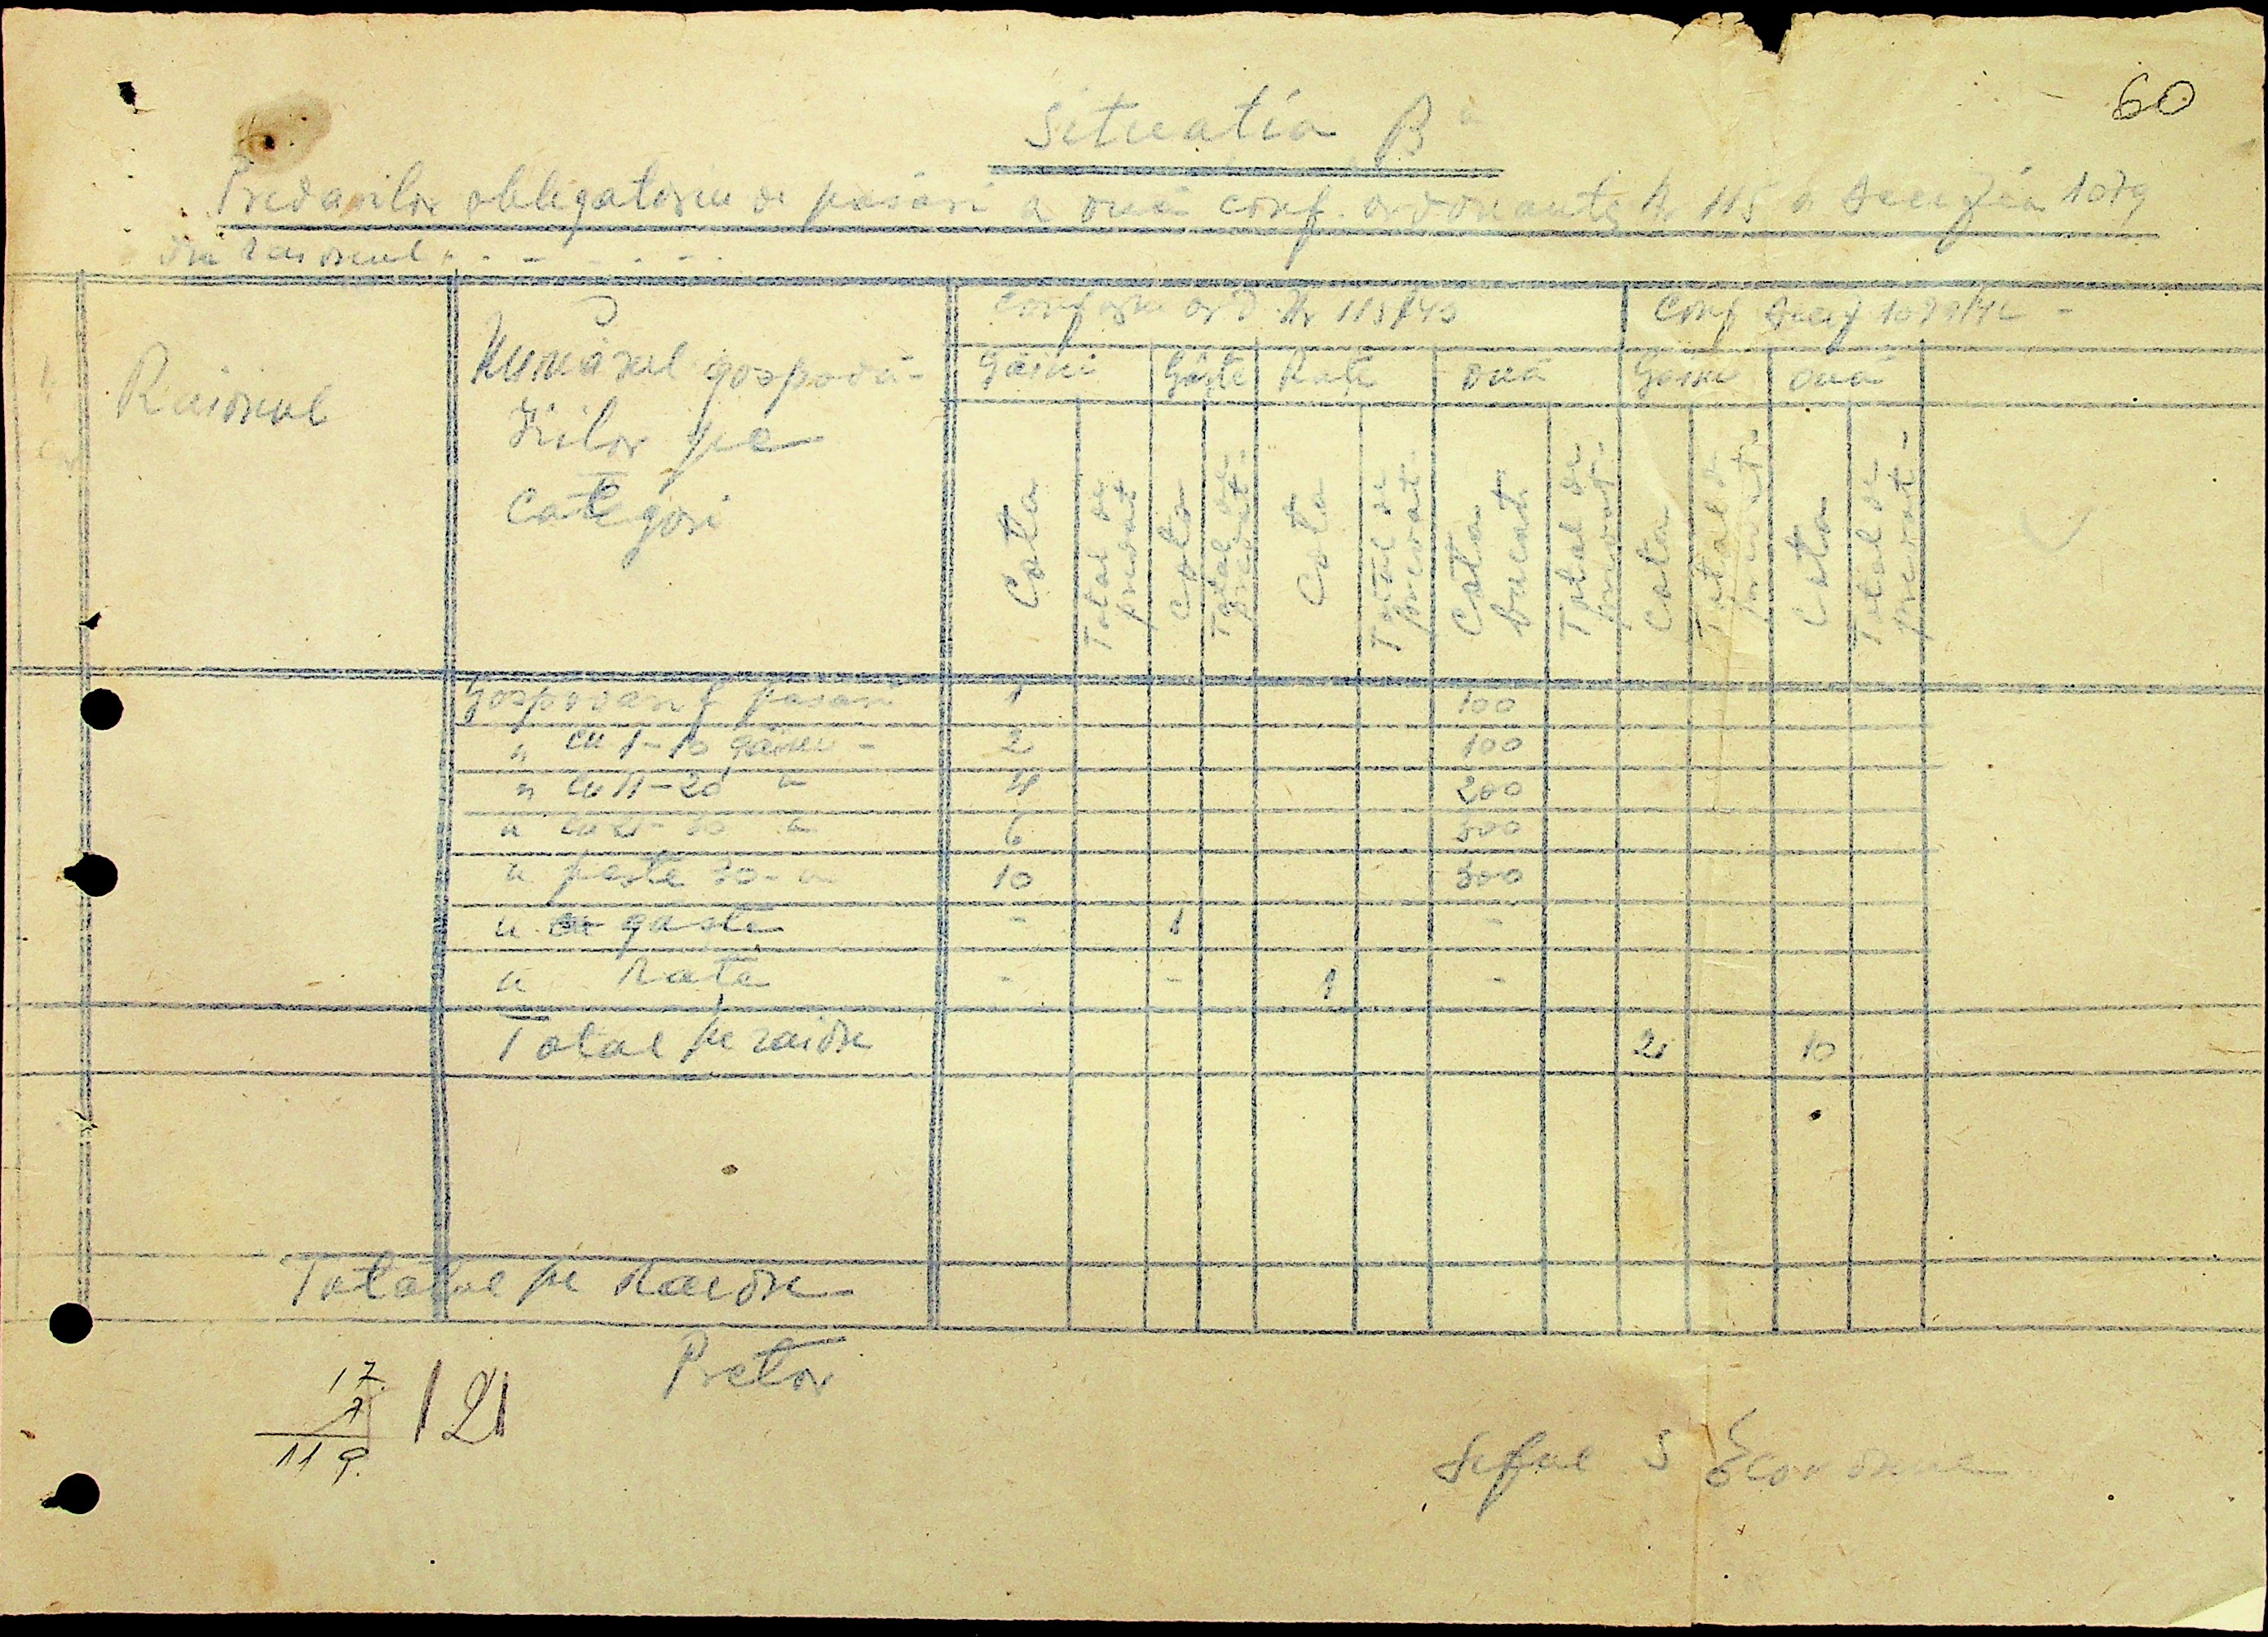 60
Situatia B
Predarilor obligatorii de pasări a ouă conf. ordonantei Nr 115 a 1079
din raionul . - - - . - .
Raionul
Numărul gospodă-
riilor pe
Categori
Conform ord. Nr 115/43
Conf 1079/42 -
Găini Gâşte Rate ouă Gaini ouă
Cota
Total de predat
Cota
Total de predat
Cota
Total de predat
Cota bucati
Total de predat
Cota
Total de predat
Cota
Total de predat
Gospodari f pasari 1 100
" cu 1-10 găini - 2 100
" cu 11-20 " 4 200
" cu 21-30 " 6 300
" peste 30- " 10 300
" gaste - 1 -
" Rate - - 1 -
Total pe raion 2 10
Totalul pe raion
Pretor
17
119
121
Seful S Economic